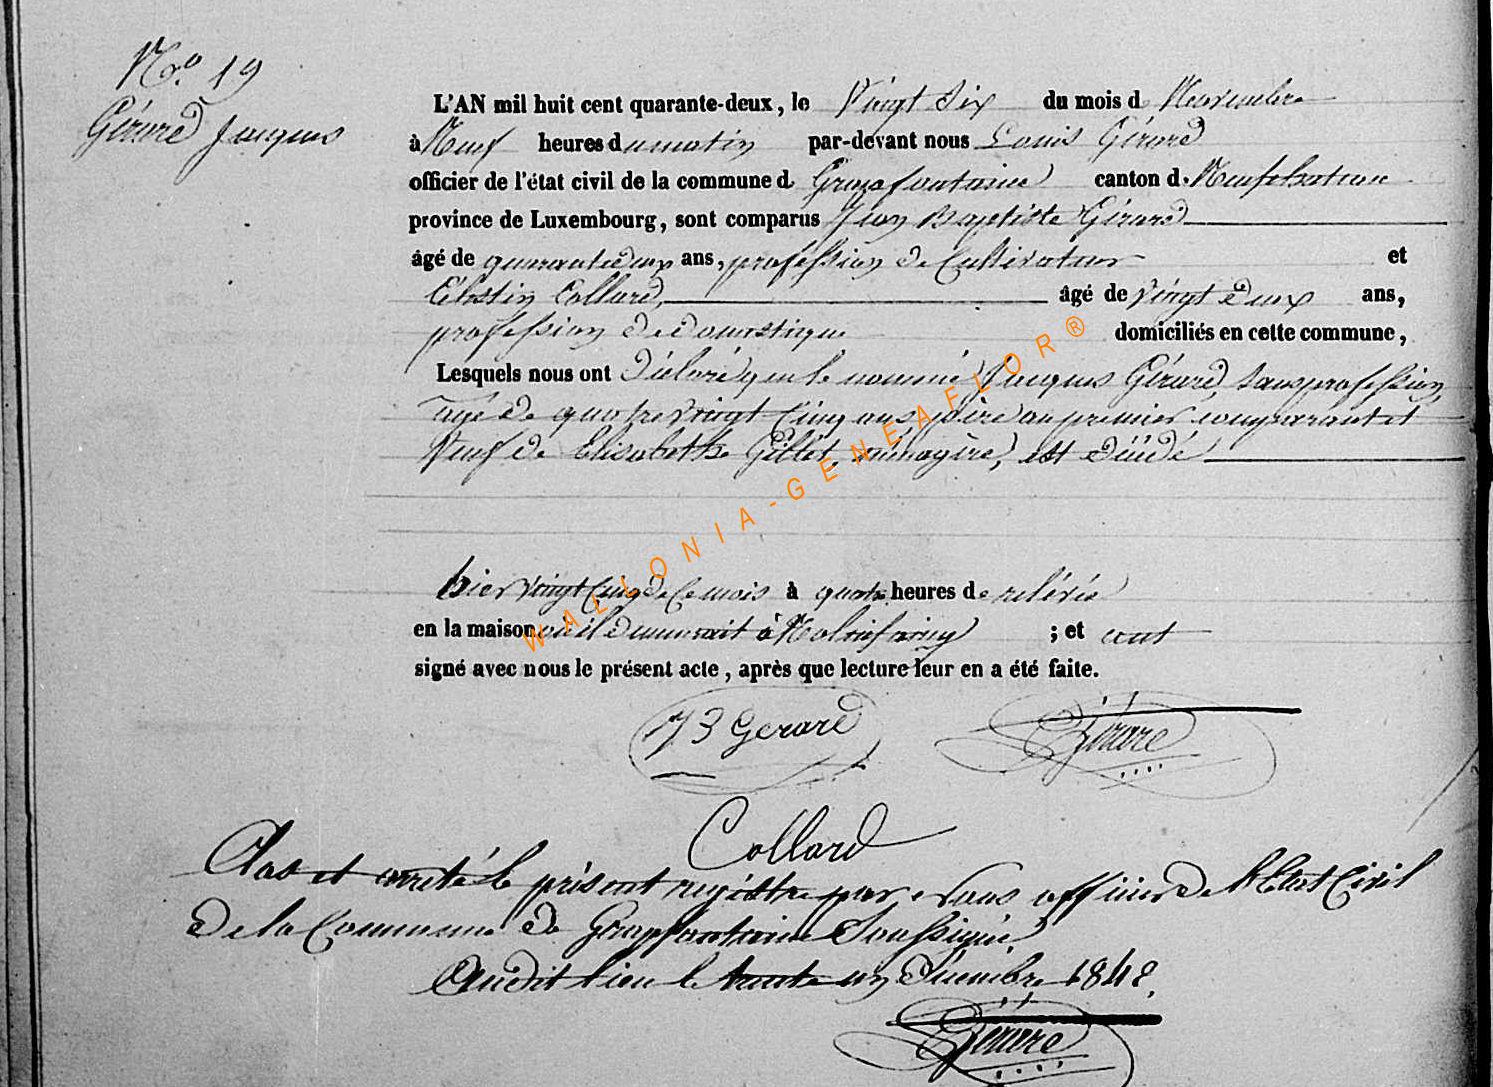 No. 19
Gérard Jacques
L'AN mil huit cent quarante-deux, le Vingt Six du mois d Novembre
à Neuf heures du matin par-devant nous Louis Gérard
officier de l'état civil de la commune d Grapfontaine canton d. Neufchateau
province de Luxembourg, sont comparus Jean Baptiste Gérard
âgé de quarante deux ans, profession de Cultivateur et
Célestin Collard, âgé de vingt deux ans,
profession de domestique domiciliés en cette commune,
Lesquels nous ont Déclaré que le nommé Jacques Gérard, sans profession,
agé de quatre vingt Cinq ans, père au premier comparant et
Veuf de Elisabethe Gillet, ménagère, est décédé
hier vingt Cinq de Ce mois à quatre heures de relévée
en la maison où il demeurait à ; et ont
signé avec nous le présent acte, après que lecture leur en a été faite.
JB Gerard Gérard
Collard
Clos et arreté le présent registre par Nous officier de l'Etat Civil
de la Commune de Grapfontaine Soussigné
Audit lieu le trente un Décembre 1842.
Gérard
WALLONIA-GENEAFLOR®